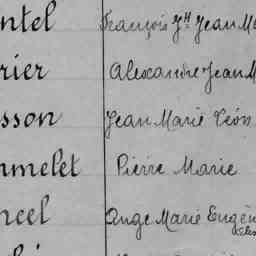 ntel François Jh Jean M
rier Alexandre Jean M
sson Jean Marie Léon
mmelet Pierre Marie
ncel Ange Marie Eugèn